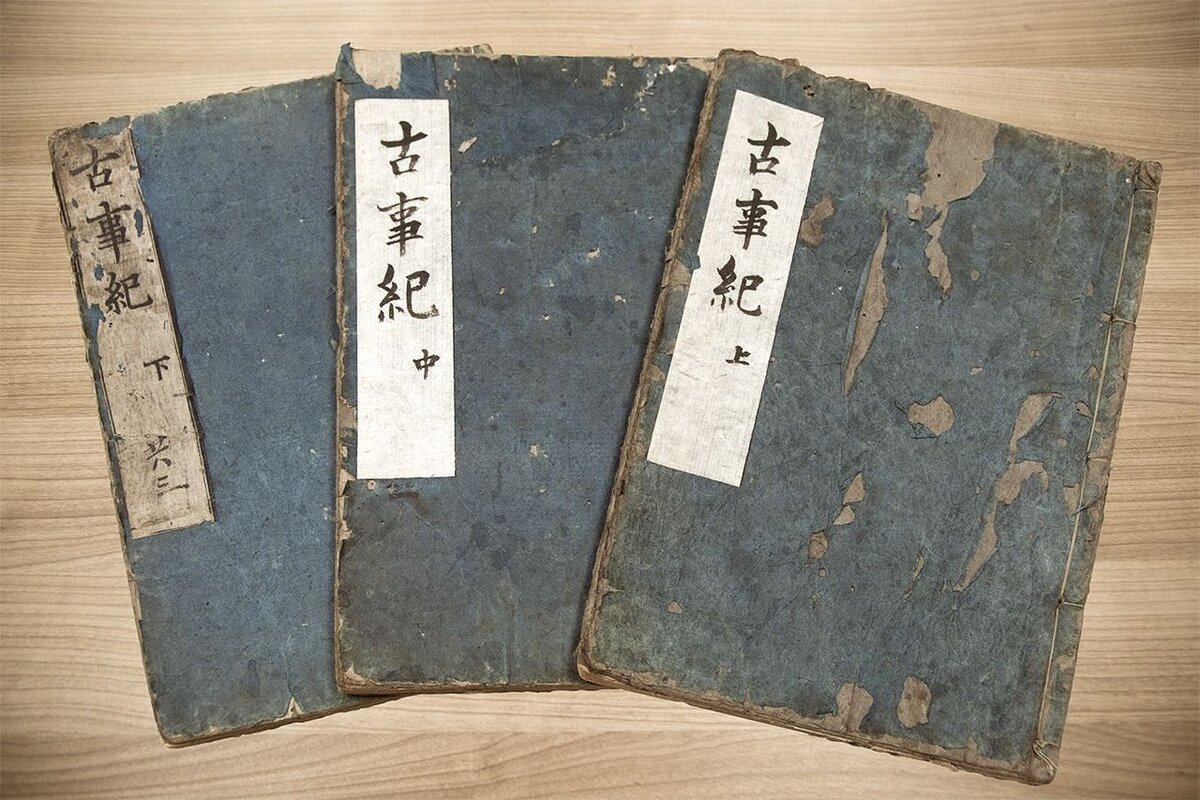 古事紀 上
古事紀 中
古事紀 下 共三